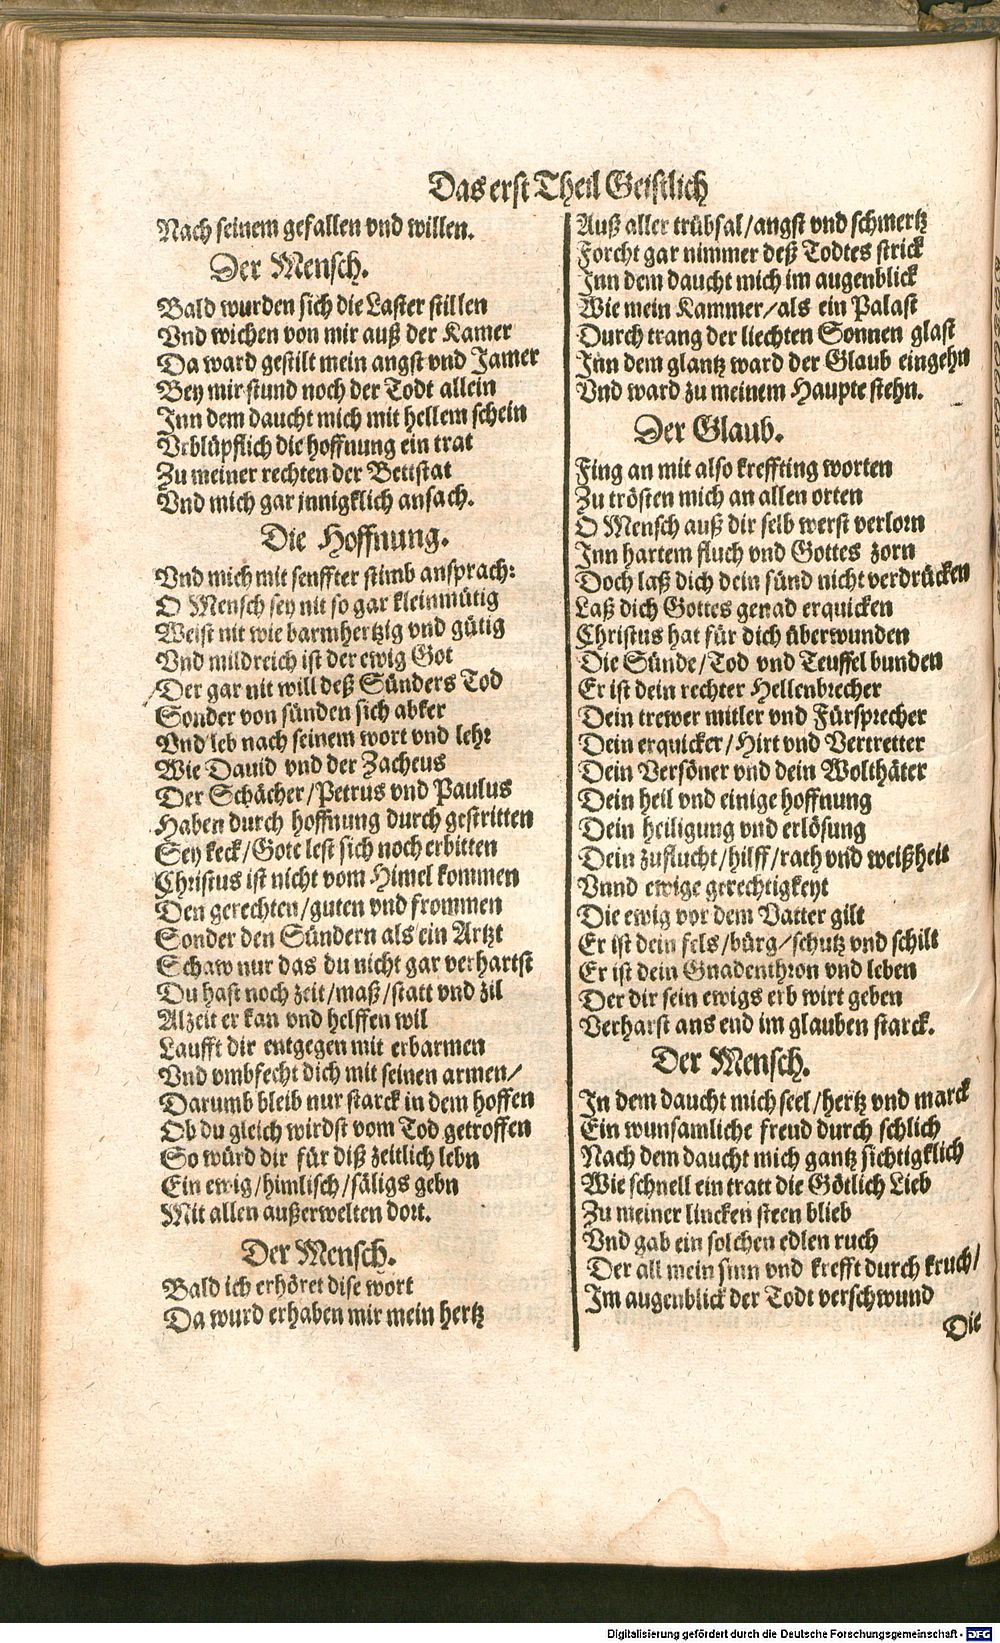 Das erst Theil Geistlich
Nach seinem gefallen vnd willen.
Der Mensch.
Bald wurden sich die Laster stillen
Vnd wichen von mir auß der Kamer
Da ward gestilt mein angst vnd Jamer
Bey mir stund noch der Todt allein
Inn dem daucht mich mit hellem schein
Vrblüpflich die hoffnung ein trat
Zu meiner rechten der Bettstat
Vnd mich gar innigklich ansach.
Die Hoffnung.
Vnd mich mit senffter stimb ansprach:
O Mensch sey nit so gar kleinmütig
Weist nit wie barmhertzig vnd gütig
Vnd mildreich ist der ewig Got
Der gar nit will deß Sünders Tod
Sonder von sünden sich abker
Vnd leb nach seinem wort vnd lehr
Wie Dauid vnd der Zacheus
Der Schächer/Petrus vnd Paulus
Haben durch hoffnung durch gestritten
Sey keck/Gott lest sich noch erbitten
Christus ist nicht vom Himel kommen
Den gerechten/guten vnd frommen
Sonder den Sündern als ein Artzt
Schaw nur das du nicht gar verhartst
Du hast noch zeit/maß/statt vnd zil
Alzeit er kan vnd helffen wil
Laufft dir entgegen mit erbarmen
Vnd vmbfecht dich mit seinen armen/
Darumb bleib nur starck in dem hoffen
Ob du gleich wirdst vom Tod getroffen
So würd dir für diß zeitlich lebn
Ein ewig/himlisch/säligs gebn
Mit allen außerwelten dort.
Der Mensch.
Bald ich erhöret dise wort
Da wurd erhaben mir mein hertz
Auß aller trübsal/angst vnd schmertz
Forcht gar nimmer deß Todtes strick
Inn dem daucht mich im augenblick
Wie mein Kammer/als ein Palast
Durch trang der liechten Sonnen glast
Inn dem glantz ward der Glaub eingehn
Vnd ward zu meinem Haupte stehn.
Der Glaub.
Fing an mit also kreffting worten
Zu trösten mich an allen orten
O Mensch auß dir selb werst verlorn
Inn hartem fluch vnd Gottes zorn
Doch laß dich dein sünd nicht verdrücken
Laß dich Gottes genad erquicken
Christus hat für dich überwunden
Die Sünde/Tod vnd Teuffel bunden
Er ist dein rechter Hellenbrecher
Dein trewer mitler vnd Fürsprecher
Dein erquicker/Hirt vnd Vertretter
Dein Versöner vnd dein Wolthäter
Dein heil vnd einige hoffnung
Dein heiligung vnd erlösung
Dein zuflucht/hilff/rath vnd weißheit
Vnnd ewige gerechtigkeyt
Die ewig vor dem Vatter gilt
Er ist dein fels/bürg/schutz vnd schilt
Er ist dein Gnadenthron vnd leben
Der dir sein ewigs erb wirt geben
Verharst ans end im glauben starck.
Der Mensch.
In dem daucht mich seel/hertz vnd marck
Ein wunsamliche freud durch schlich
Nach dem daucht mich gantz sichtigklich
Wie schnell ein tratt die Götlich Lieb
Zu meiner lincken steen blieb
Vnd gab ein solchen edlen ruch
Der all mein sinn vnd krefft durch kruch/
Im augenblick der Todt verschwund
Die
Digitalisierung gefördert durch die Deutsche Forschungsgemeinschaft - DFG